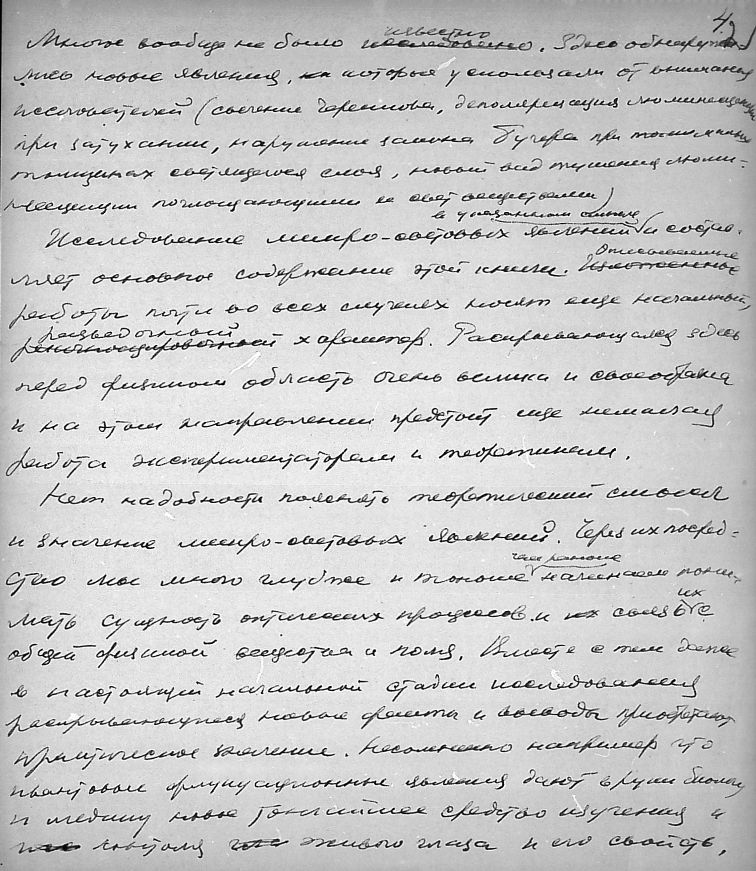 42
Многое вообще не было исследовано известно. Здесь обнаружи-
лись новые явления, которые ускользали от внимания
исследователей (свечение Черенкова, деполяризация люминесценции
при затухании, нарушение закона Бугера при
толщинах светящегося слоя, новый вид тушения люми-
несценции поглощающими ее свет веществами)
Исследование микро-световых явлений в указанном смысле и состав-
ляет основное содержание этой книги. Изложенные Описываемые
работы почти во всех случаях носят еще начальный,
рекогносцировочный разведочный характер. Раскрывающаяся здесь
перед физиком область очень велика и своеобразна
и на этом направлении предстоит еще немалая
работа экспериментаторам и теоретикам.
Нет надобности пояснять теоретический смысл
и значение микро-световых явлений. Через их посред-
ство мы много глубже и тоньше чем раньше начинаем пони-
мать сущность оптических процессов и их связь с
общей физикой вещества и поля. Вместе с тем даже
в настоящей начальной стадии исследования
раскрывающиеся новые факты и выводы приобретают
практическое значение. Несомненно например что
квантовые флуктуационные явления дают в руки биологу
и медику новое тончайшее средство изучения и
контроля живого глаза и его свойств,